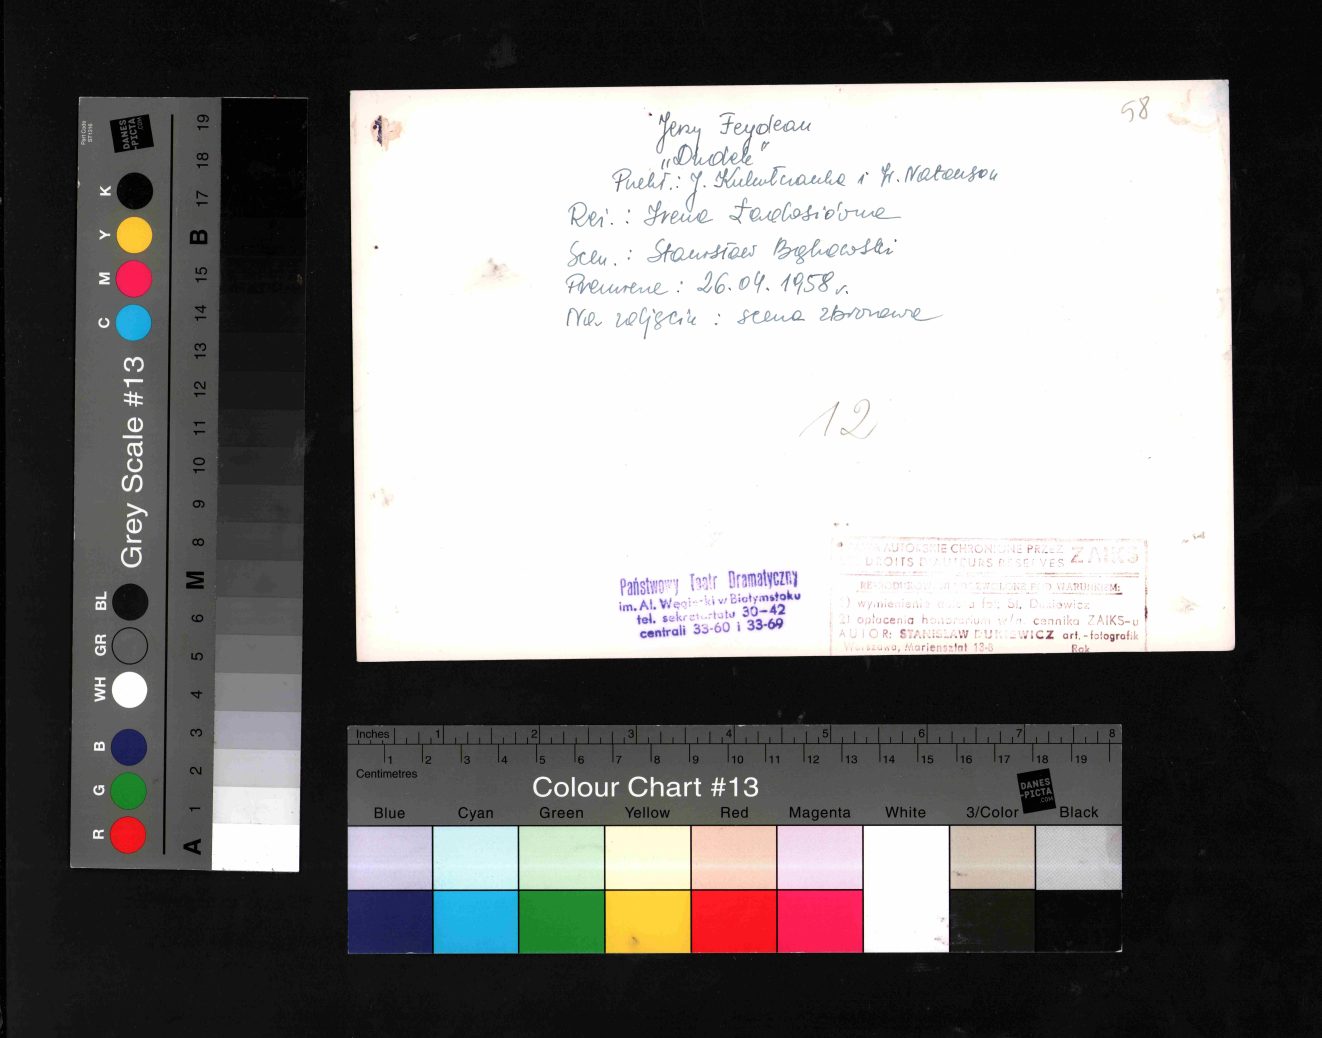 58
Jerzy Feydeau
„Dudek"
Przekł.: J. Kukułczanka i W. Natanson
Reż.: Irena Ładosiówna
Scen.: Stanisław Bąkowski
Premiera: 26.04.1958 r.
Na zdjęciu: scena zbiorowa
12
Państwowy Teatr Dramatyczny
im. Al. Węgierki w Białymstoku
tel. sekretariatu 30-42
centrali 33-60 i 33-69
AUTORSKIE CHRONIONE PRZEZ ZAIKS
DROITS D'AUTEURS RESERVES
1) wymienienia St. Dukiewicz
2) opłacenia honorarium w/g. cennika ZAIKS-u
AUTOR: STANISŁAW DUKIEWICZ art.-fotografik
Warszawa, Mariensztat Rok
Part Code
ST1316
DANES
-PICTA
.COM
Grey Scale #13
R G B WH GR BL C M Y K
A 1 2 3 4 5 6 M 8 9 10 11 12 13 14 15 B 17 18 19
Inches 1 2 3 4 5 6 7 8
1 2 3 4 5 6 7 8 9 10 11 12 13 14 15 16 17 18 19
Centimetres
Colour Chart #13
DANES
-PICTA
.COM
Blue Cyan Green Yellow Red Magenta White 3/Color Black